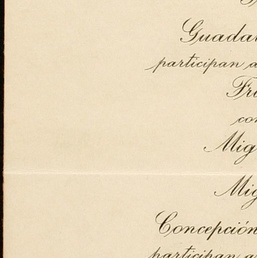 Guada
participan a
Fr
con
Mig
Mig
Concepción
participan a